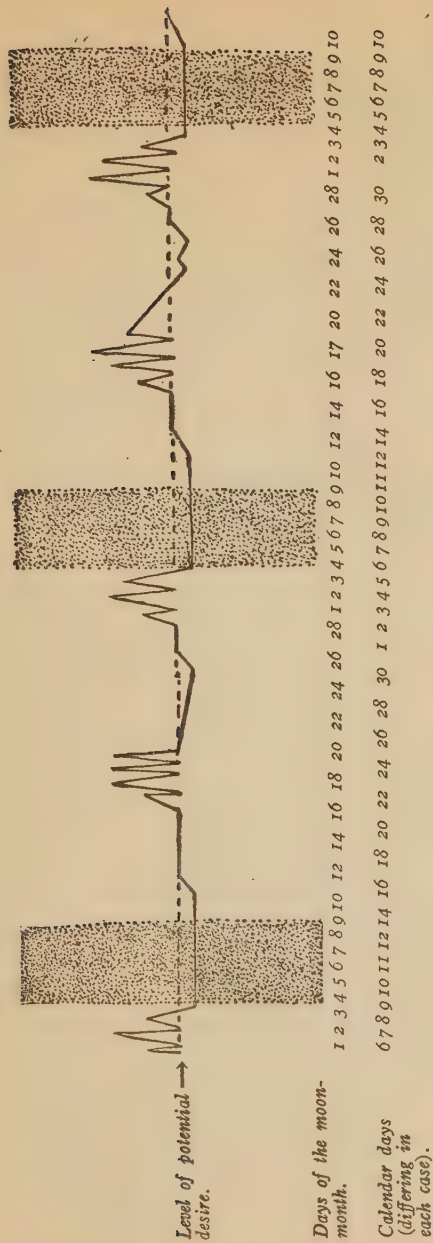 Level of potential →
desire.
Days of the moon-
month.
1 2 3 4 5 6 7 8 9 10 12 14 16 18 20 22 24 26 28 1 2 3 4 5 6 7 8 9 10 12 14 16 17 20 22 24 26 28 1 2 3 4 5 6 7 8 9 10
Calendar days
(differing in
each case).
6 7 8 9 10 11 12 14 16 18 20 22 24 26 28 30 1 2 3 4 5 6 7 8 9 10 11 12 14 16 18 20 22 24 26 28 30 2 3 4 5 6 7 8 9 10